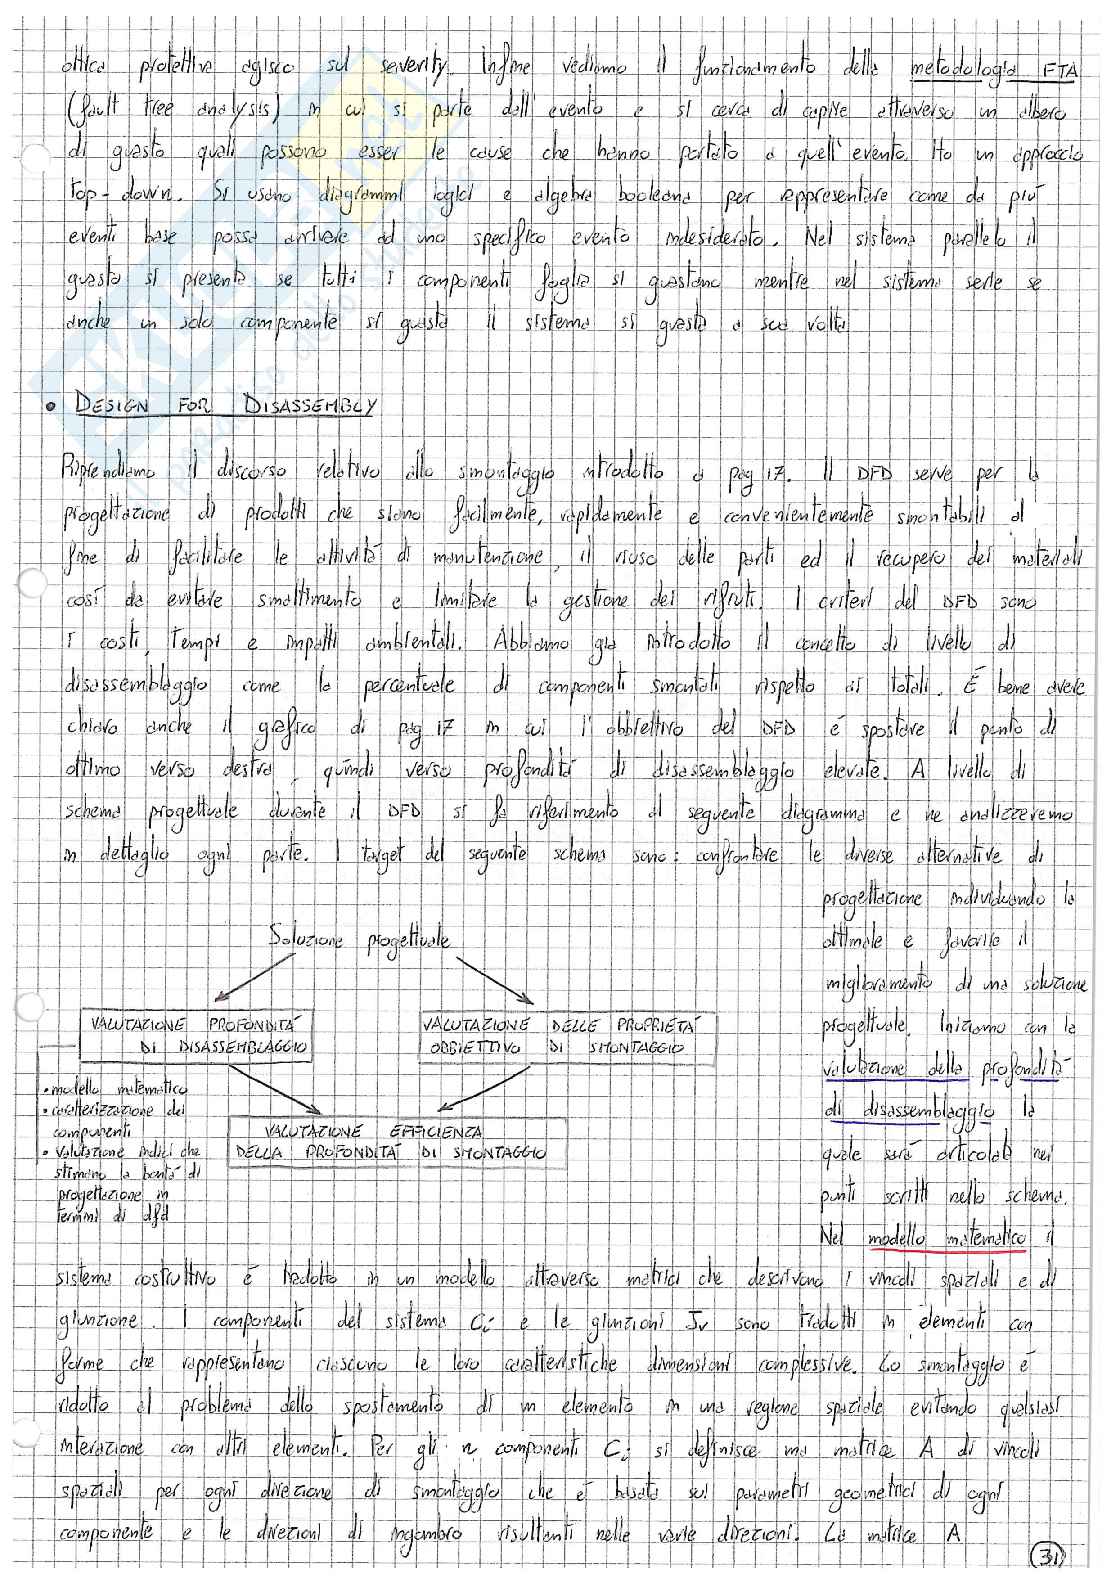 ottica protettiva agisco sul severity. Infine vediamo il funzionamento della metodologia FTA
(fault tree analysis) in cui si parte dall'evento e si cerca di capire attraverso un albero
di guasto quali possono esser le cause che hanno portato a quell'evento. Ho un approccio
top-down. Si usano diagrammi logici e algebra booleana per rappresentare come da più
eventi base possa arrivare ad uno specifico evento indesiderato. Nel sistema parallelo il
guasto si presenta se tutti i componenti foglia si guastano mentre nel sistema serie se
anche un solo componente si guasta il sistema si guasta a sua volta
• DESIGN FOR DISASSEMBLY
Riprendiamo il discorso relativo allo smontaggio introdotto a pag 17. Il DFD serve per la
progettazione di prodotti che siano facilmente, rapidamente e convenientemente smontabili al
fine di facilitare le attività di manutenzione, il riuso delle parti ed il recupero dei materiali
così da evitare smaltimento e limitare la gestione dei rifiuti. I criteri del DFD sono
i costi, tempi e impatti ambientali. Abbiamo già introdotto il concetto di livello di
disassemblaggio come la percentuale di componenti smontati rispetto ai totali. È bene avere
chiaro anche il grafico di pag 17 in cui l'obbiettivo del DFD é spostare il punto di
ottimo verso destra, quindi verso profondità di disassemblaggio elevate. A livello di
schema progettuale durante il DFD si fa riferimento al seguente diagramma e ne analizzeremo
in dettaglio ogni parte. I target del seguente schema sono: confrontare le diverse alternative di
progettazione individuando la
ottimale e favorire il
miglioramento di una soluzione
progettuale. Iniziamo con la
valutazione della profondità
di disassemblaggio la
quale sarà articolata nei
punti scritti nello schema.
Nel modello matematico il
Soluzione progettuale
VALUTAZIONE PROFONDITÀ
DI DISASSEMBLAGGIO
VALUTAZIONE DELLE PROPRIETÀ
OBBIETTIVO DI SMONTAGGIO
• modello matematico
• caratterizzazione dei
componenti
• valutazione indici che
stimano la bontà di
progettazione in
termini di dfd
VALUTAZIONE EFFICIENZA
DELLA PROFONDITÀ DI SMONTAGGIO
sistema costruttivo é tradotto in un modello attraverso matrici che descrivono i vincoli spaziali e di
giunzione. I componenti del sistema Ci e le giunzioni Jv sono tradotti in elementi con
forme che rappresentano ciascuno le loro caratteristiche dimensioni complessive. Lo smontaggio é
ridotto al problema dello spostamento di un elemento in una regione spaziale evitando qualsiasi
interazione con altri elementi. Per gli n componenti Ci si definisce una matrice A di vincoli
spaziali per ogni direzione di smontaggio che é basata sui parametri geometrici di ogni
componente e le direzioni di ingombro risultanti nelle varie direzioni. La matrice A
31